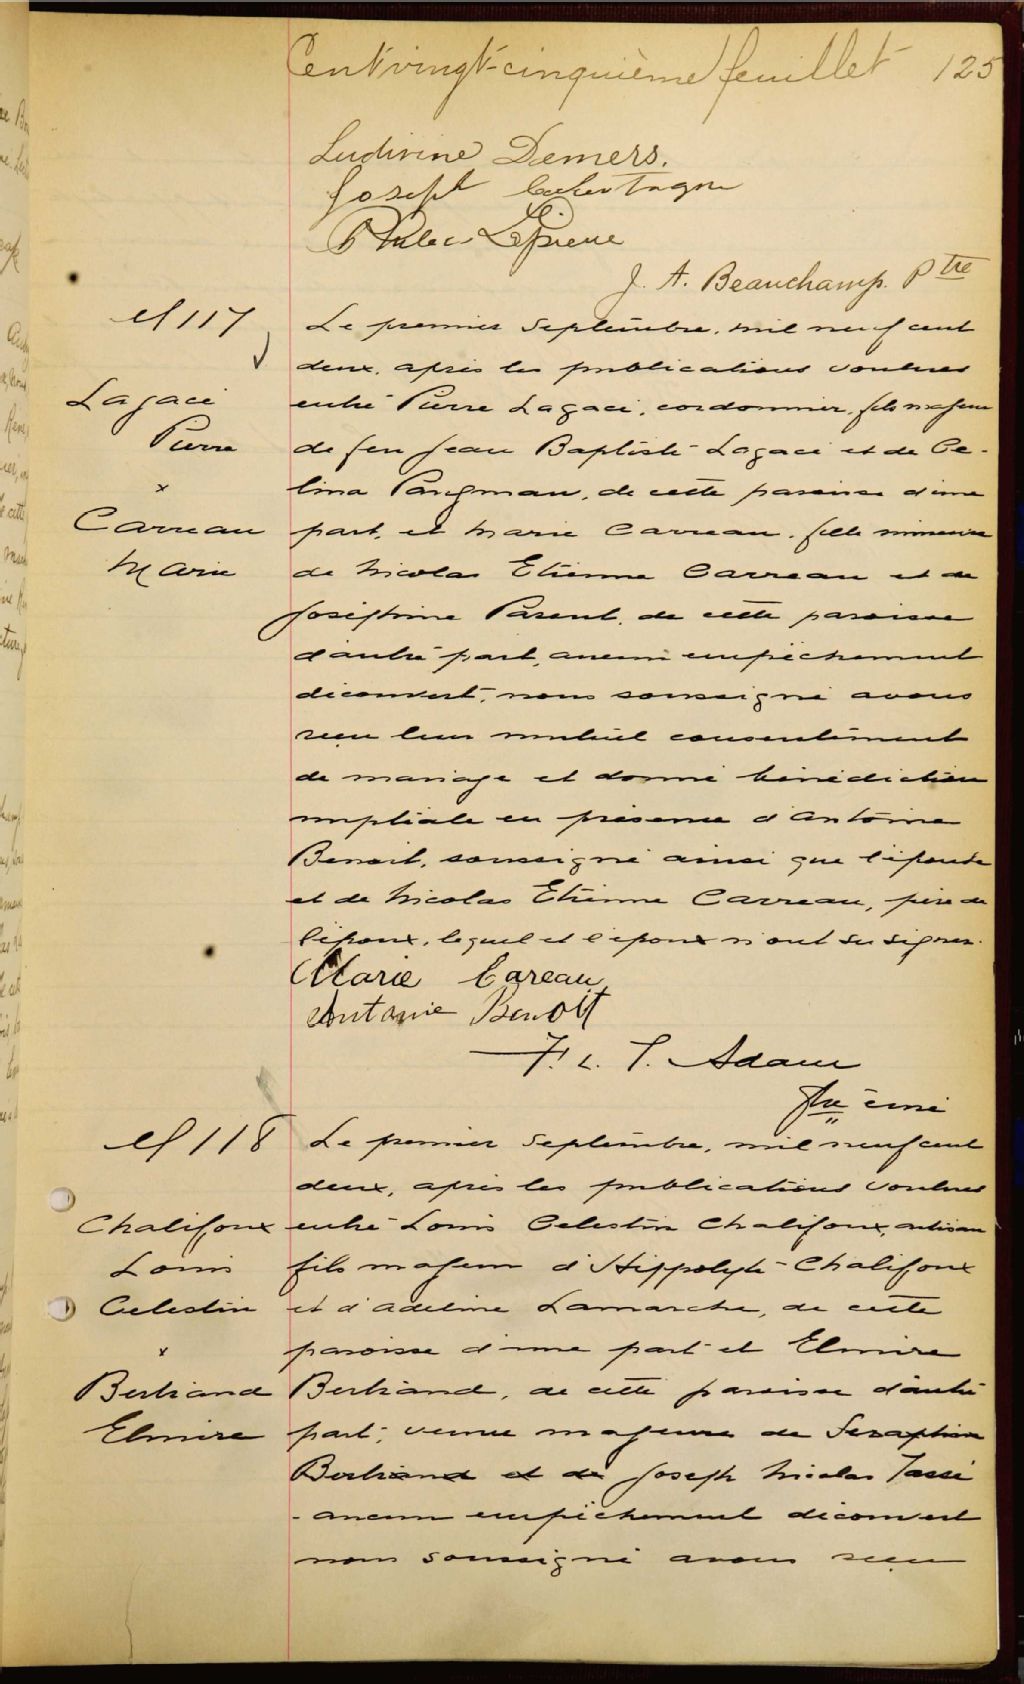 Cent vingt-cinquième feuillet 125
Ludivine Demers.
Joseph
J. A. Beauchamp. Ptre
M 117
Lagacé
Pierre
x
Carreau
Marie
Le premier Septembre, mil neuf cent
deux, après les publications voulues
entre Pierre Lagacé, cordonnier, fils majeur
de feu Jean Baptiste Lagacé et de Ce-
lina Pangman, de cette paroisse d'une
part, et Marie Carreau, fille mineure
de Nicolas Etienne Carreau et de
Joséphine Parent, de cette paroisse
d'autre part, aucun empêchement
découvert, nous soussigné avons
reçu leur mutuel consentement
de mariage et donné bénédiction
nuptiale en présence d'Antoine
Benoit, soussigné ainsi que l'épouse
et de Nicolas Etienne Carreau, père de
l'époux, lequel et l'époux n'ont su signer.
Marie Careau
Antonie Benoit
F. L. T. Adam
Ptre curé
M 118
Chalifoux
Louis
Celestin
x
Bertrand
Elmire
Le premier Septembre, mil neuf cent
deux, après les publications voulues
entre Louis Celestin Chalifoux, artisan
fils majeur d'Hippolyte Chalifoux
et d'Adeline Lamarche, de cette
paroisse d'une part et Elmire
Bertrand, de cette paroisse d'autre
part, veuve majeure de Seraphin
Bertrand et de Joseph Nicolas Tassé
- aucun empêchement découvert
nous soussigné avons reçu